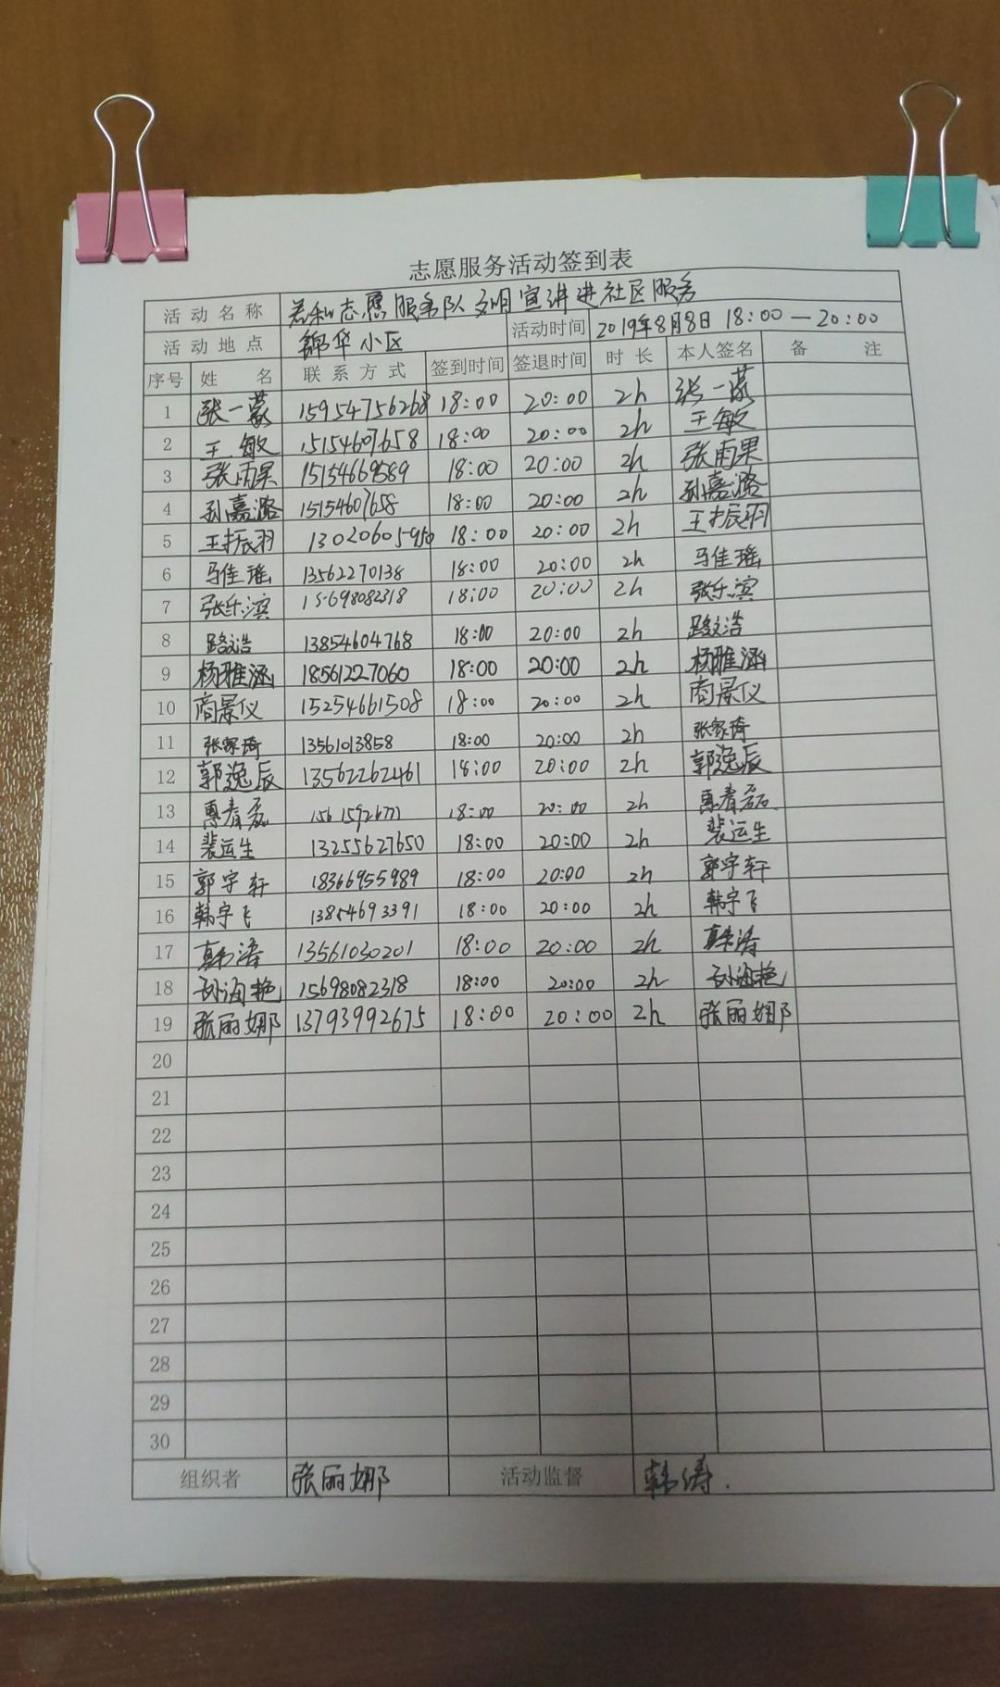 志愿服务活动签到表
活动名称 志愿服务队文明宣讲进社区服务
活动地点 锦华小区 活动时间 2019年8月8日 18:00—20:00
序号 姓名 联系方式 签到时间 签退时间 时长 本人签名 备注
1 张一蒙 15954756268 18:00 20:00 2h 张一蒙
2 王敏 15154607658 18:00 20:00 2h 王敏
3 张雨果 15154669589 18:00 20:00 2h 张雨果
4 孙嘉潞 15154607658 18:00 20:00 2h 孙嘉潞
5 王振羽 13020605950 18:00 20:00 2h 王振羽
6 马佳瑶 13562270138 18:00 20:00 2h 马佳瑶
7 张乐滨 15698082318 18:00 20:00 2h 张乐滨
8 路文浩 13854604768 18:00 20:00 2h 路文浩
9 杨雅涵 18561227060 18:00 20:00 2h 杨雅涵
10 商景仪 15254661508 18:00 20:00 2h 商景仪
11 张家琦 13561013858 18:00 20:00 2h 张家琦
12 郭逸辰 13562262461 18:00 20:00 2h 郭逸辰
13 惠春磊 18:00 20:00 2h 惠春磊
14 裴运生 13255627650 18:00 20:00 2h 裴运生
15 郭宇轩 18366955989 18:00 20:00 2h 郭宇轩
16 韩宇飞 13854693391 18:00 20:00 2h 韩宇飞
17 韩涛 13561030201 18:00 20:00 2h 韩涛
18 孙海艳 15698082318 18:00 20:00 2h 孙海艳
19 张丽娜 13793992675 18:00 20:00 2h 张丽娜
20
21
22
23
24
25
26
27
28
29
30
组织者 张丽娜 活动监督 韩涛.